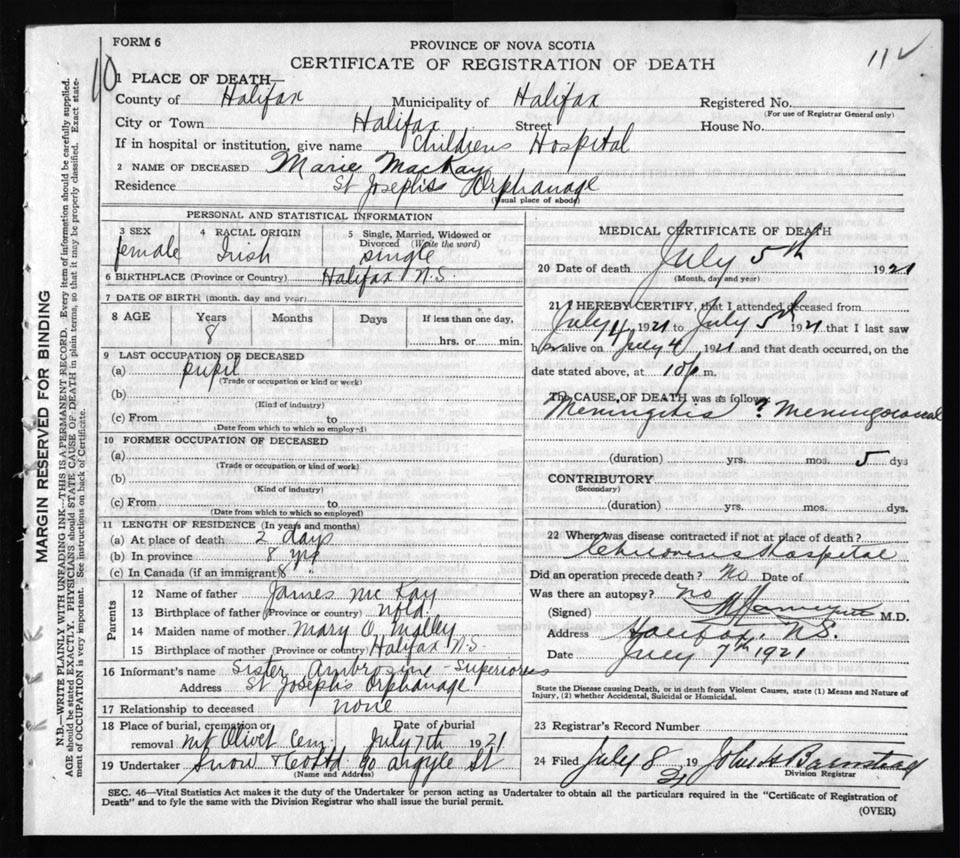 FORM 6
PROVINCE OF NOVA SCOTIA
CERTIFICATE OF REGISTRATION OF DEATH
10
11 ✓
1 PLACE OF DEATH—
County of Halifax Municipality of Halifax Registered No.
(For use of Registrar General only)
City or Town Halifax Street House No.
If in hospital or institution, give name Childrens Hospital
2 NAME OF DECEASED Marie MacKay
Residence St Joseph's Orphanage
(Usual place of abode)
PERSONAL AND STATISTICAL INFORMATION
3 SEX female
4 RACIAL ORIGIN Irish
5 Single, Married, Widowed or Divorced (Write the word) single
6 BIRTHPLACE (Province or Country) Halifax N.S.
7 DATE OF BIRTH (month, day and year)
8 AGE Years Months Days If less than one day,
8 hrs. or min.
9 LAST OCCUPATION OF DECEASED
(a) pupil
(Trade or occupation or kind or work)
(b)
(Kind of industry)
(c) From to
(Date from which to which so employed)
10 FORMER OCCUPATION OF DECEASED
(a)
(Trade or occupation or kind of work)
(b)
(Kind of industry)
(c) From to
(Date from which to which so employed)
11 LENGTH OF RESIDENCE (In years and months)
(a) At place of death 2 days
(b) In province 8 yrs
(c) In Canada (if an immigrant) 8 "
Parents
12 Name of father James McKay
13 Birthplace of father (Province or country) Nfld
14 Maiden name of mother Mary O'Malley
15 Birthplace of mother (Province or country) Halifax N.S.
16 Informant's name Sister Ambrosine - Superioress
Address St Joseph's Orphanage
17 Relationship to deceased none
18 Place of burial, cremation or Date of burial
removal Mt Olivet Cem. July 7th 1921
19 Undertaker Snow & Co Ltd 90 Argyle St
(Name and Address)
MEDICAL CERTIFICATE OF DEATH
20 Date of death July 5th 1921
(Month, day and year)
21 I HEREBY CERTIFY, that I attended deceased from
July 4 1921 to July 5th 1921 that I last saw
her alive on July 4 1921 and that death occurred, on the
date stated above, at 10 p m.
The CAUSE OF DEATH was as follows:
Meningitis ? Meningococcal
(duration) yrs. mos. 5 dys
CONTRIBUTORY
(Secondary)
(duration) yrs. mos. dys.
22 Where was disease contracted if not at place of death?
Childrens Hospital
Did an operation precede death? No Date of
Was there an autopsy? No
(Signed) M.D.
Address Halifax, N.S.
Date July 7th 1921
State the Disease causing Death, or in death from Violent Causes, state (1) Means and Nature of
Injury, (2) whether Accidental, Suicidal or Homicidal.
23 Registrar's Record Number
24 Filed July 8 19 21 John H Barnstead
Division Registrar
SEC. 46—Vital Statistics Act makes it the duty of the Undertaker or person acting as Undertaker to obtain all the particulars required in the "Certificate of Registration of
Death" and to fyle the same with the Division Registrar who shall issue the burial permit.
(OVER)
MARGIN RESERVED FOR BINDING
N.B.—WRITE PLAINLY WITH UNFADING INK—THIS IS A PERMANENT RECORD. Every item of information should be carefully supplied.
AGE should be stated EXACTLY. PHYSICIANS should STATE CAUSE OF DEATH in plain terms, so that it may be properly classified. Exact state-
ment of OCCUPATION is very important. See instructions on back of Certificate.